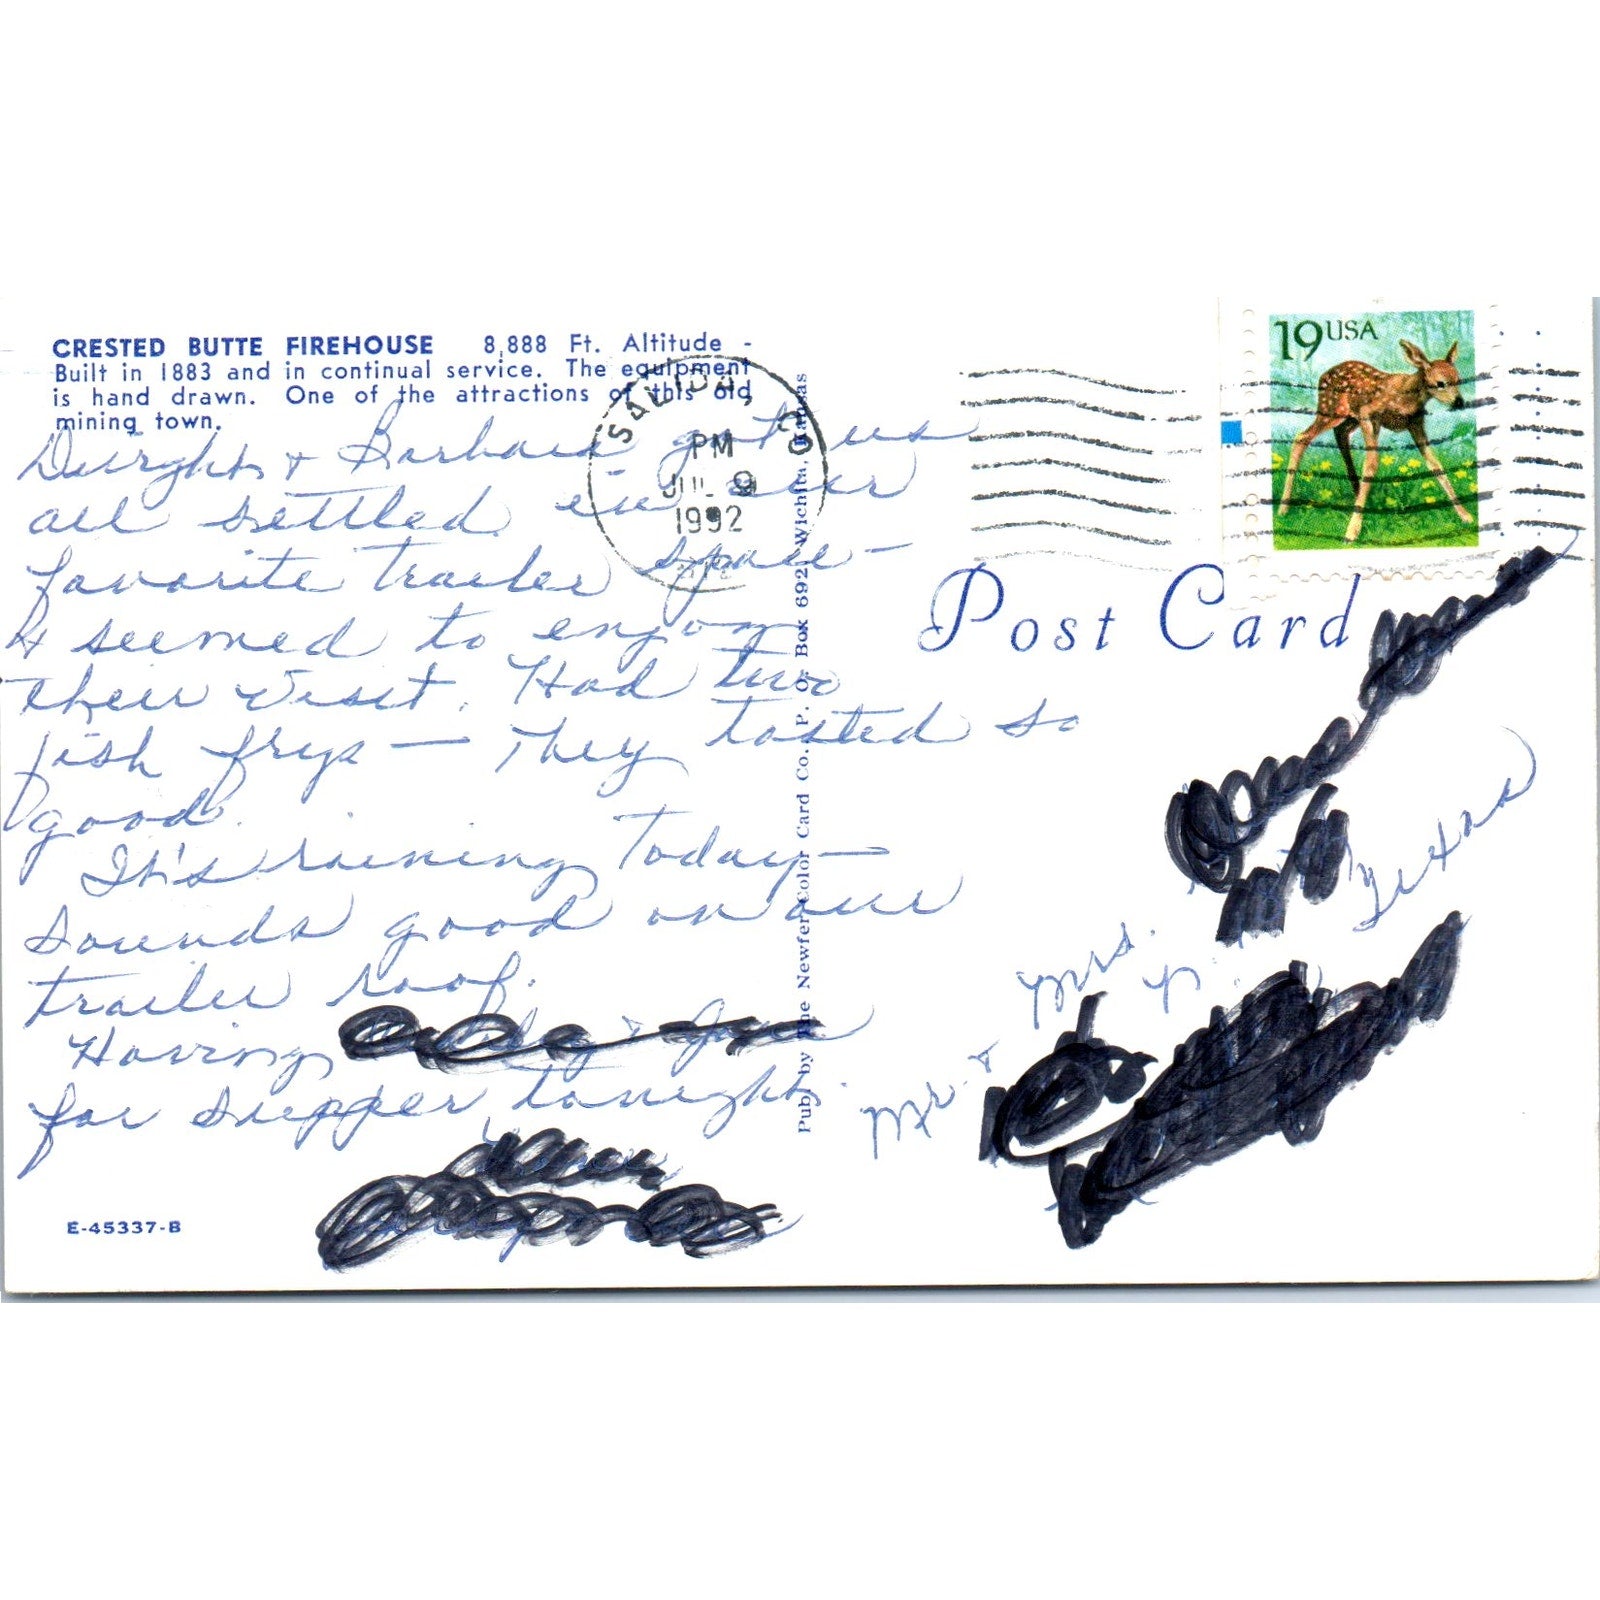 CRESTED BUTTE FIREHOUSE 8,888 Ft. Altitude -
Built in 1883 and in continual service. The equipment
is hand drawn. One of the attractions of this old
mining town.
Dwight & Barbara got us
all settled in our
favorite trailer space -
& seemed to enjoy
their visit. Had two
fish frys — They tasted so
good.
It's raining today —
sounds good on our
trailer roof.
Having
for supper tonight.
E-45337-B
Pub. by The Newfer Color Card Co. P. O. Box 692, Wichita, Kansas
SALIDA, CO
PM
JUL 9
1992
19 USA
Post Card
Mr & Mrs.
Texas